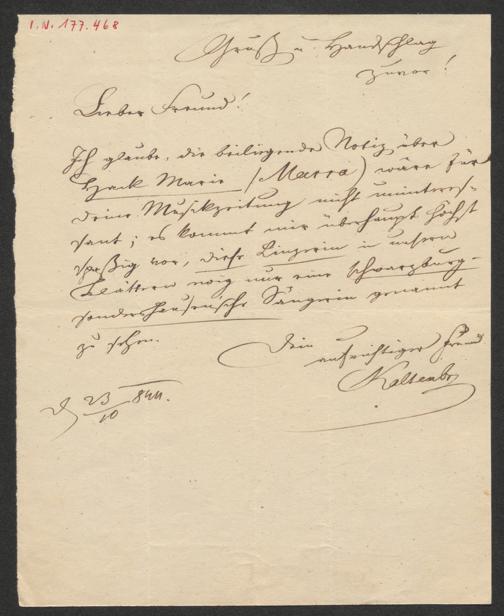 I.N. 177.468
Gruß u. Handschlag
zuvor!
Lieber Freund!
Ich glaube, die beiliegende Notiz über
Hack Marie (Marra) wäre für
deine Musikzeitung nicht uninteres-
sant; es kommt mir überhaupt höchst
spaßig vor, diese Linzerin in unsern
Blättern ewig nur eine schwarzburg-
sondershausenische Sängerin genannt
zu sehen.
Dein
aufrichtiger Freund
Kaltenb
23/10 844.